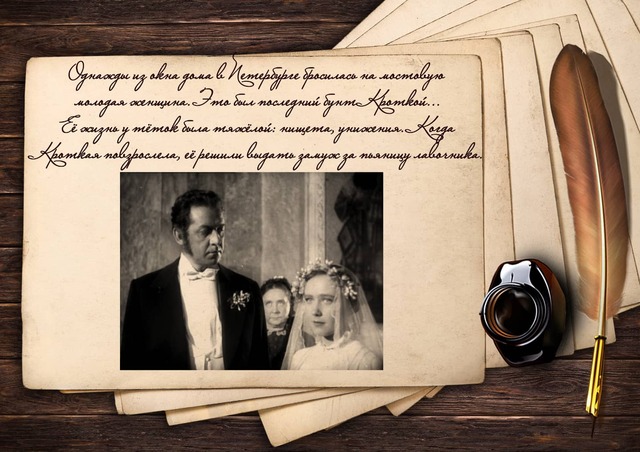 Однажды из окна дома в Петербурге бросилась на мостовую
молодая женщина. Это был последний бунт Кроткой...
Её жизнь у тёток была тяжёлой: нищета, унижения. Когда
Кроткая повзрослела, её решили выдать замуж за пьяницу лавочника.